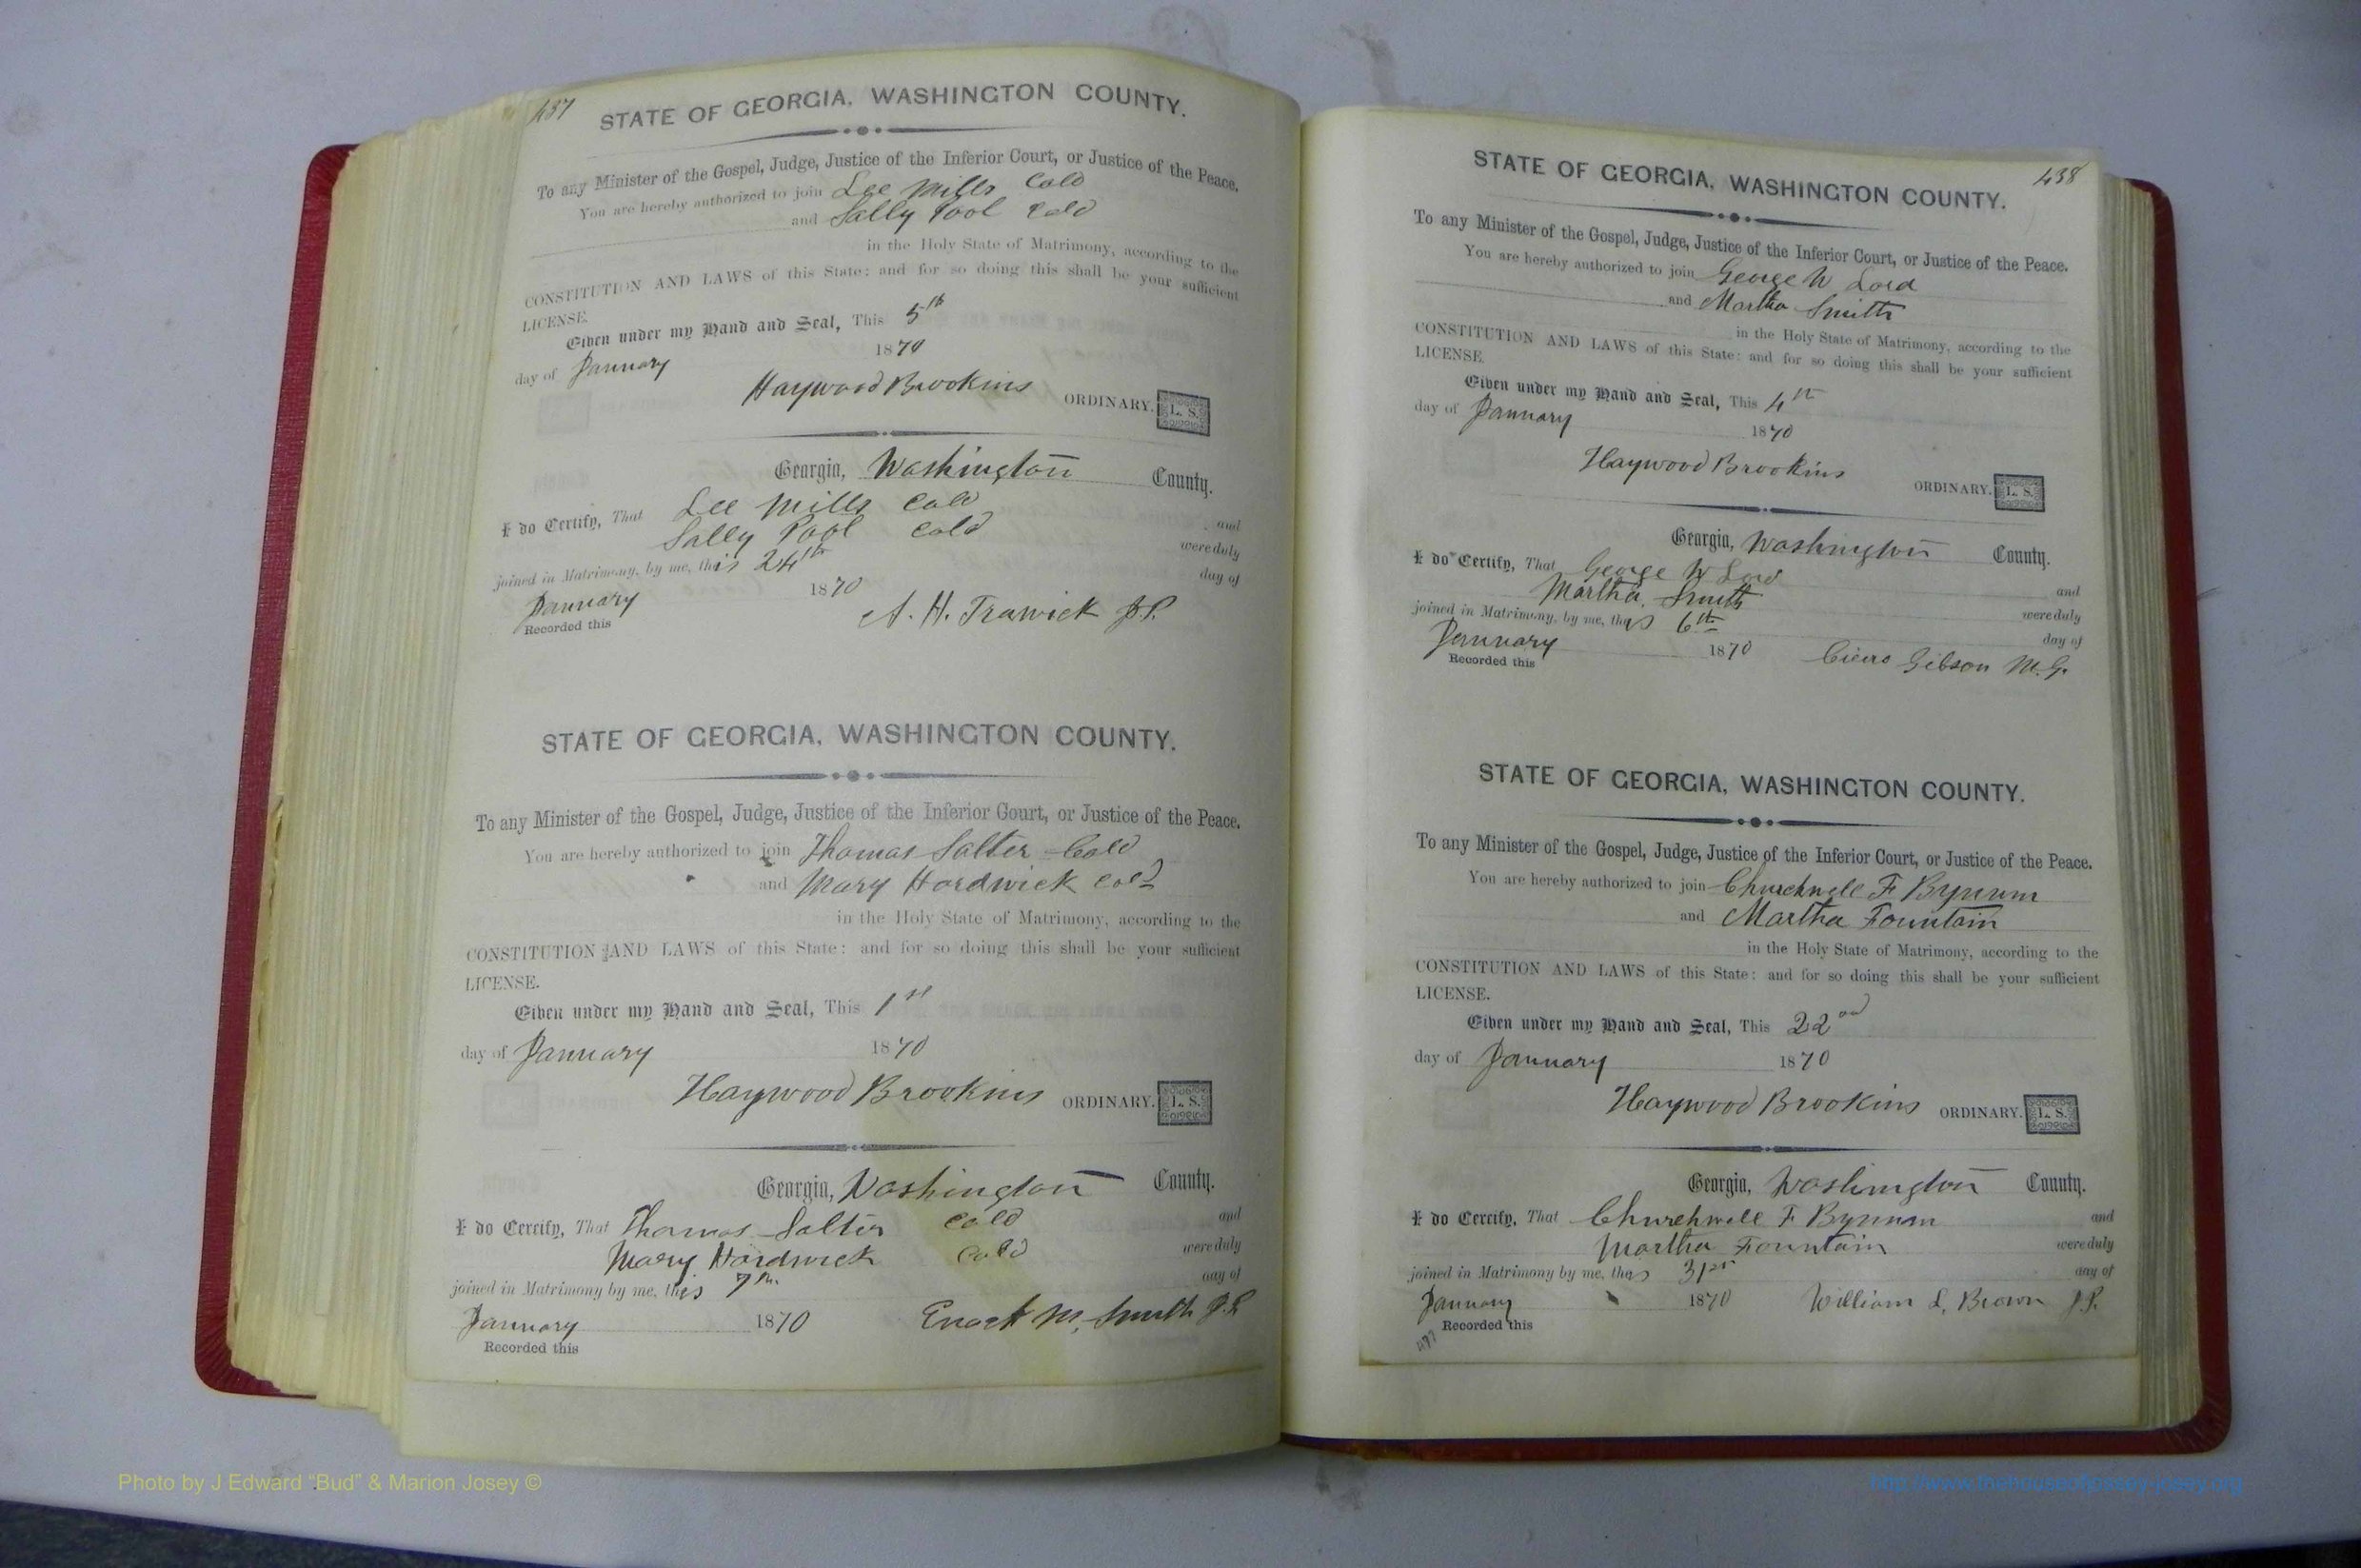 437
STATE OF GEORGIA, WASHINGTON COUNTY.
To any Minister of the Gospel, Judge, Justice of the Inferior Court, or Justice of the Peace.
You are hereby authorized to join Lee Mills Cold
and Sally Pool Cold
in the Holy State of Matrimony, according to the
CONSTITUTION AND LAWS of this State: and for so doing this shall be your sufficient
LICENSE.
Given under my Hand and Seal, This 5th
day of January 1870
Haywood Brookins ORDINARY. L. S.
Georgia, Washington County.
I do Certify, That Lee Mills Cold and
Sally Pool Cold were duly
joined in Matrimony, by me, this 24th day of
January 1870 A. H. Trawick J.P.
Recorded this
STATE OF GEORGIA, WASHINGTON COUNTY.
To any Minister of the Gospel, Judge, Justice of the Inferior Court, or Justice of the Peace.
You are hereby authorized to join Thomas Salter Cold
and Mary Hardwick Cold
in the Holy State of Matrimony, according to the
CONSTITUTION AND LAWS of this State: and for so doing this shall be your sufficient
LICENSE.
Given under my Hand and Seal, This 1st
day of January 1870
Haywood Brookins ORDINARY. L. S.
Georgia, Washington County.
I do Certify, That Thomas Salter Cold and
Mary Hardwick Cold were duly
joined in Matrimony by me, this 7th day of
January 1870 Enoch M. Smith J.P.
Recorded this
438
STATE OF GEORGIA, WASHINGTON COUNTY.
To any Minister of the Gospel, Judge, Justice of the Inferior Court, or Justice of the Peace.
You are hereby authorized to join George W Lord
and Martha Smith
in the Holy State of Matrimony, according to the
CONSTITUTION AND LAWS of this State: and for so doing this shall be your sufficient
LICENSE.
Given under my Hand and Seal, This 4th
day of January 1870
Haywood Brookins ORDINARY. L. S.
Georgia, Washington County.
I do Certify, That George W Lord and
Martha Smith were duly
joined in Matrimony, by me, this 6th day of
January 1870 Cicero Gibson M.G.
Recorded this
STATE OF GEORGIA, WASHINGTON COUNTY.
To any Minister of the Gospel, Judge, Justice of the Inferior Court, or Justice of the Peace.
You are hereby authorized to join Churchwell F Bynum
and Martha Fountain
in the Holy State of Matrimony, according to the
CONSTITUTION AND LAWS of this State: and for so doing this shall be your sufficient
LICENSE.
Given under my Hand and Seal, This 22nd
day of January 1870
Haywood Brookins ORDINARY. L. S.
Georgia, Washington County.
I do Certify, That Churchwell F Bynum and
Martha Fountain were duly
joined in Matrimony by me, this 31st day of
January 1870 William L. Brown J.P.
Recorded this
Photo by J Edward “Bud” & Marion Josey ©